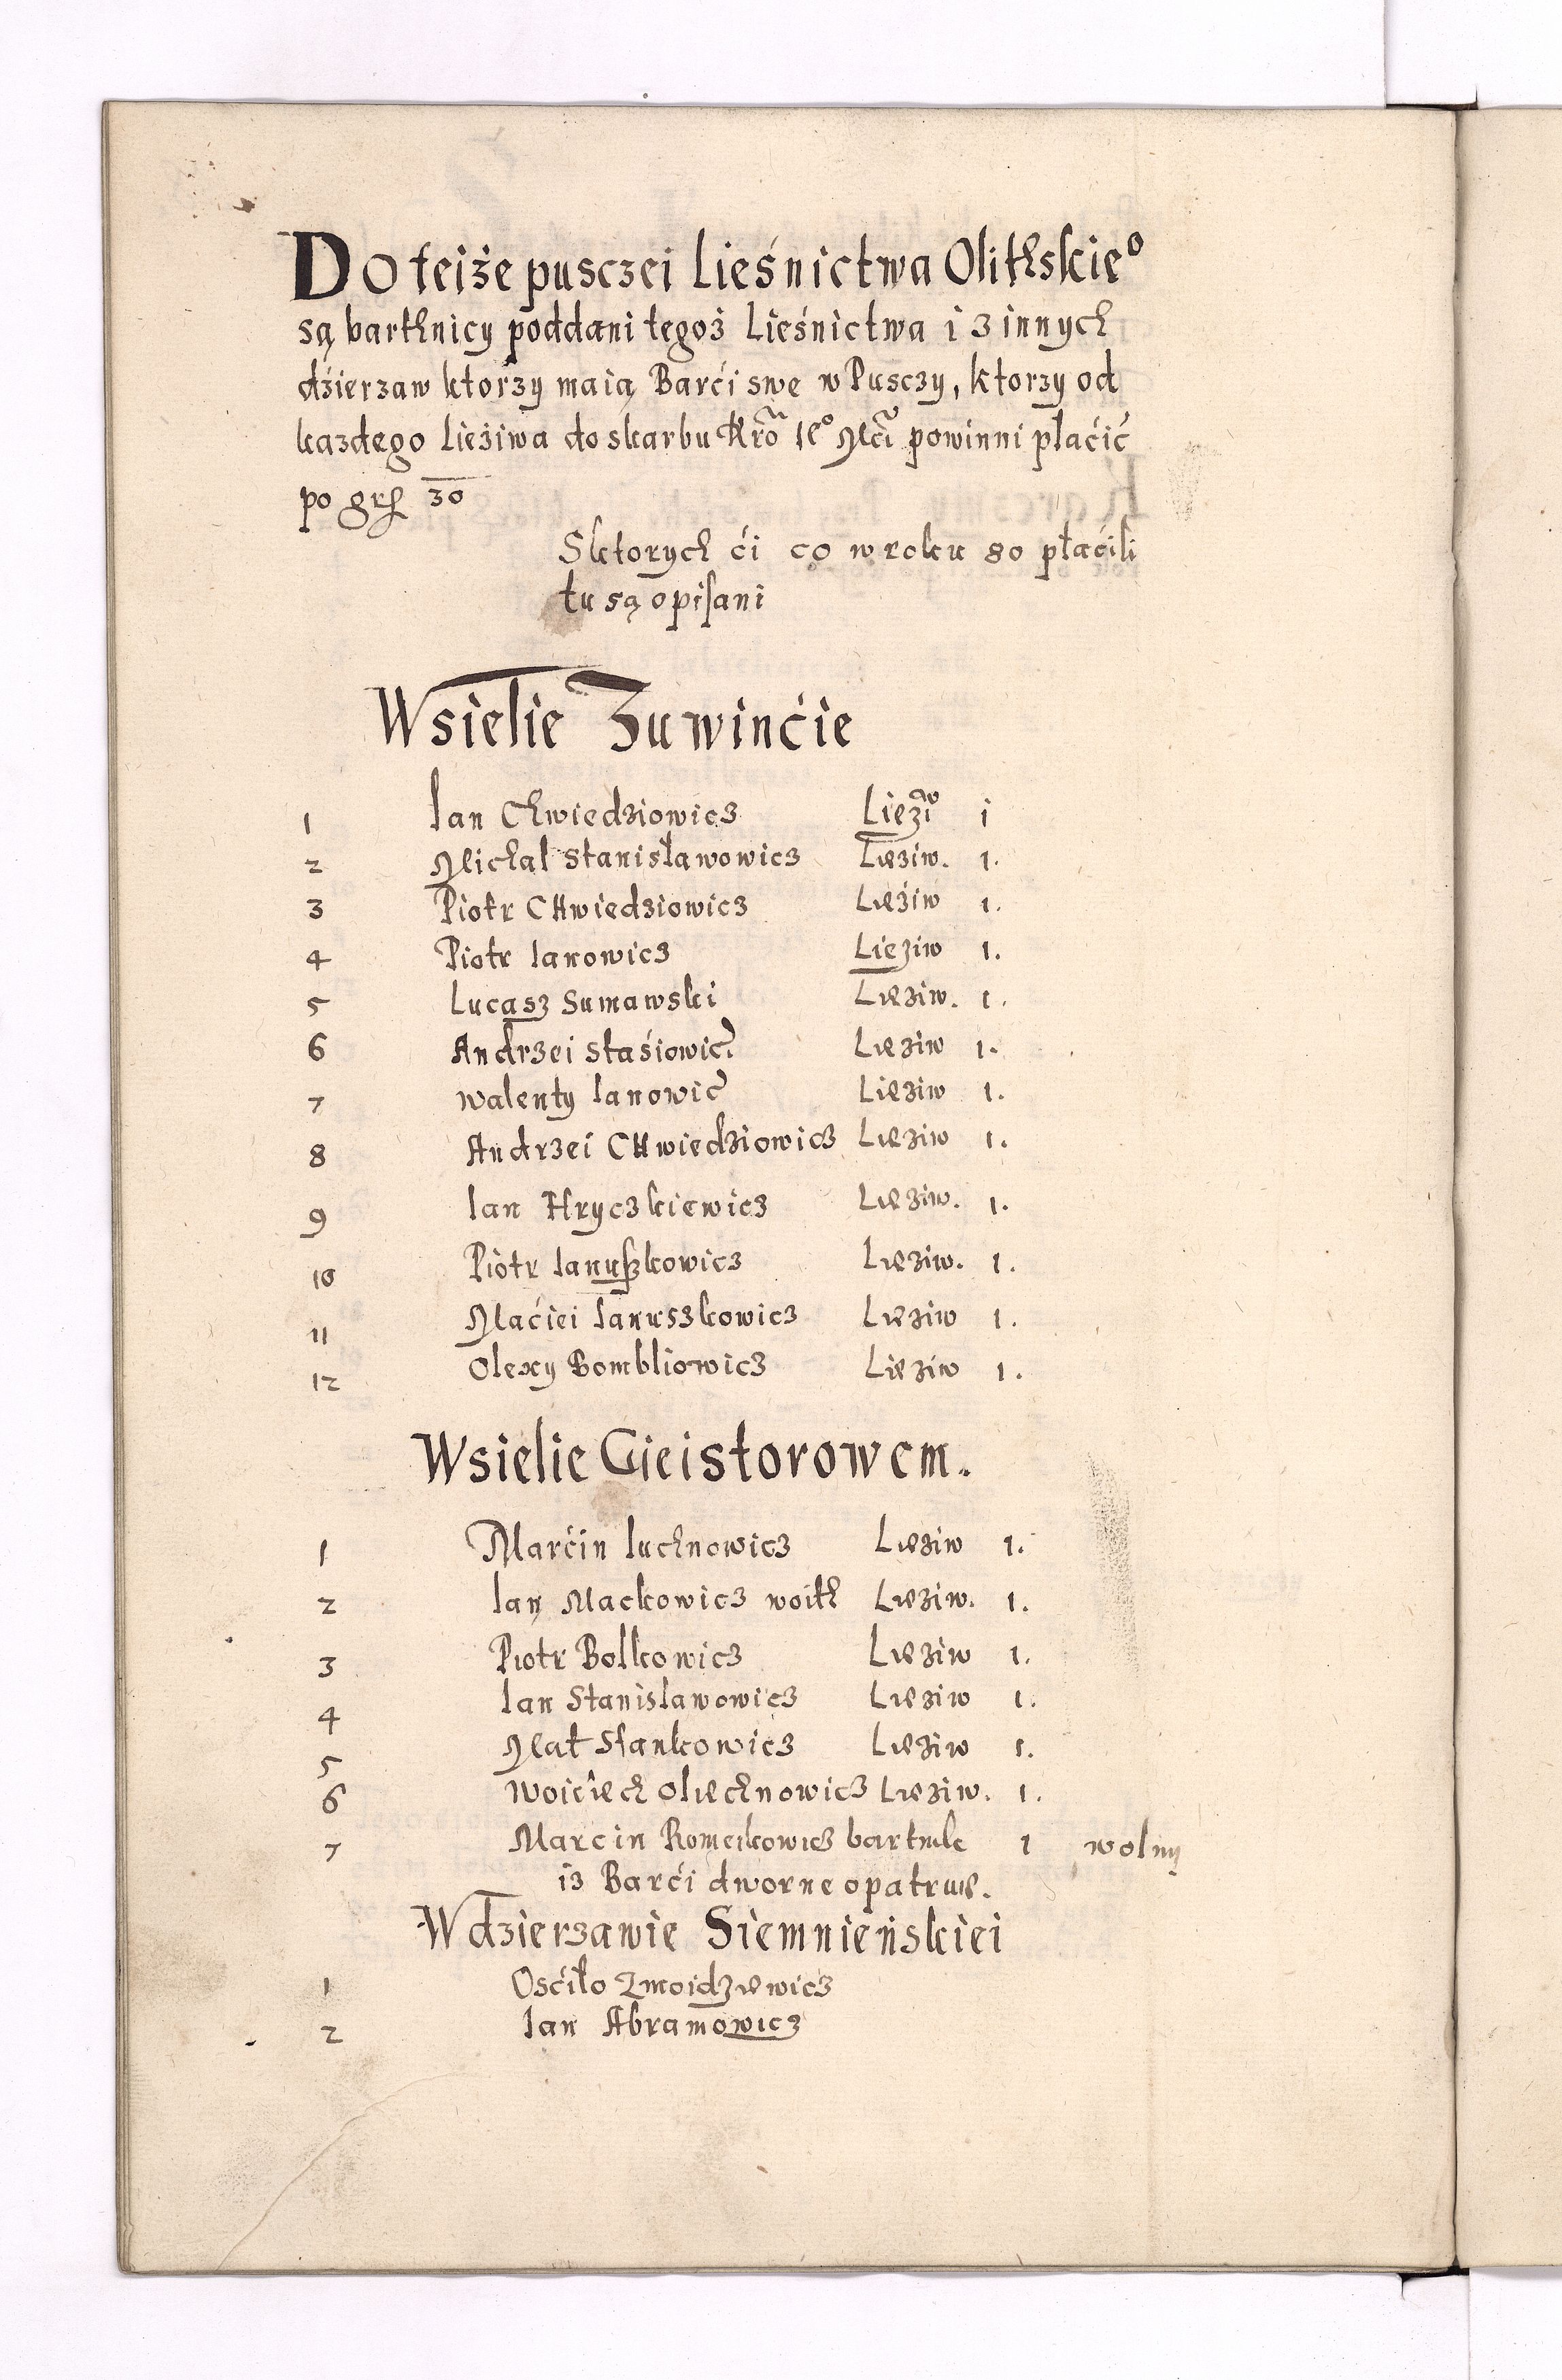 Do teiże pusczei Lieśnictwa Olithskie°
są barthnicy poddani tegoż Lieśnictwa i z innych
dźierzaw ktorzy maią Barći swe w Pusczy, ktorzy od
kazdego Lieżiwa do skarbu Kro Ie° Mci powinni płaćić
po grß 30
Sktorych ći co w roku 80 płaćili
tu są opisani
Wsielie Zuwinćie
1 Ian Chwiedziowicz Liezıwo i
2 Michał Stanisławowicz Lieziw. 1.
3 Piotr Chwiedziowicz Lieżiw 1.
4 Piotr Ianowicz Lieziw 1.
5 Lucasz Sumawski Lieziw. 1.
6 Andrzei Staśiowic. Lieziw 1.
7 walenty Ianowic Lieziw 1.
8 Andrzei CHwiedziowicz Lieziw 1.
9 Ian Hryczkiewicz Lieziw. 1.
10 Piotr Ianußkowicz Lieziw. 1.
11 Maćiei Ianuszkowicz Lieziw 1.
12 Olexy Bombliowicz Lieziw 1.
Wsielie Gieistorowem.
1 Marćin Iuchnowicz Lieziw 1.
2 Ian Mackowicz woith Lieziw. 1.
3 Piotr Bolkowicz Lieziw 1.
4 Ian Stanislawowicz Lieziw 1.
5 Mat Stankowicz Lieziw 1.
6 Woićiech Oliechnowicz Lieziw. 1.
7 Marcin Romeikowicz bartnik 1 wolny
iz Barći dworne opatruie.
Wdzierzawie Siemnieńskiei
1 Ośćiło Zmoidziewicz
2 Ian Abramowicz